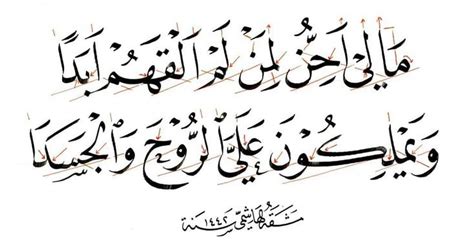 مَا لِي أَحِنُّ لِمَنْ لَمْ أَلْقَهُمْ أَبَدًا
وَيَمْلِكُونَ عَلَيَّ الرُّوحَ وَالْجَسَدَا
مشقه الهاشمي سنة ١٤٤٢